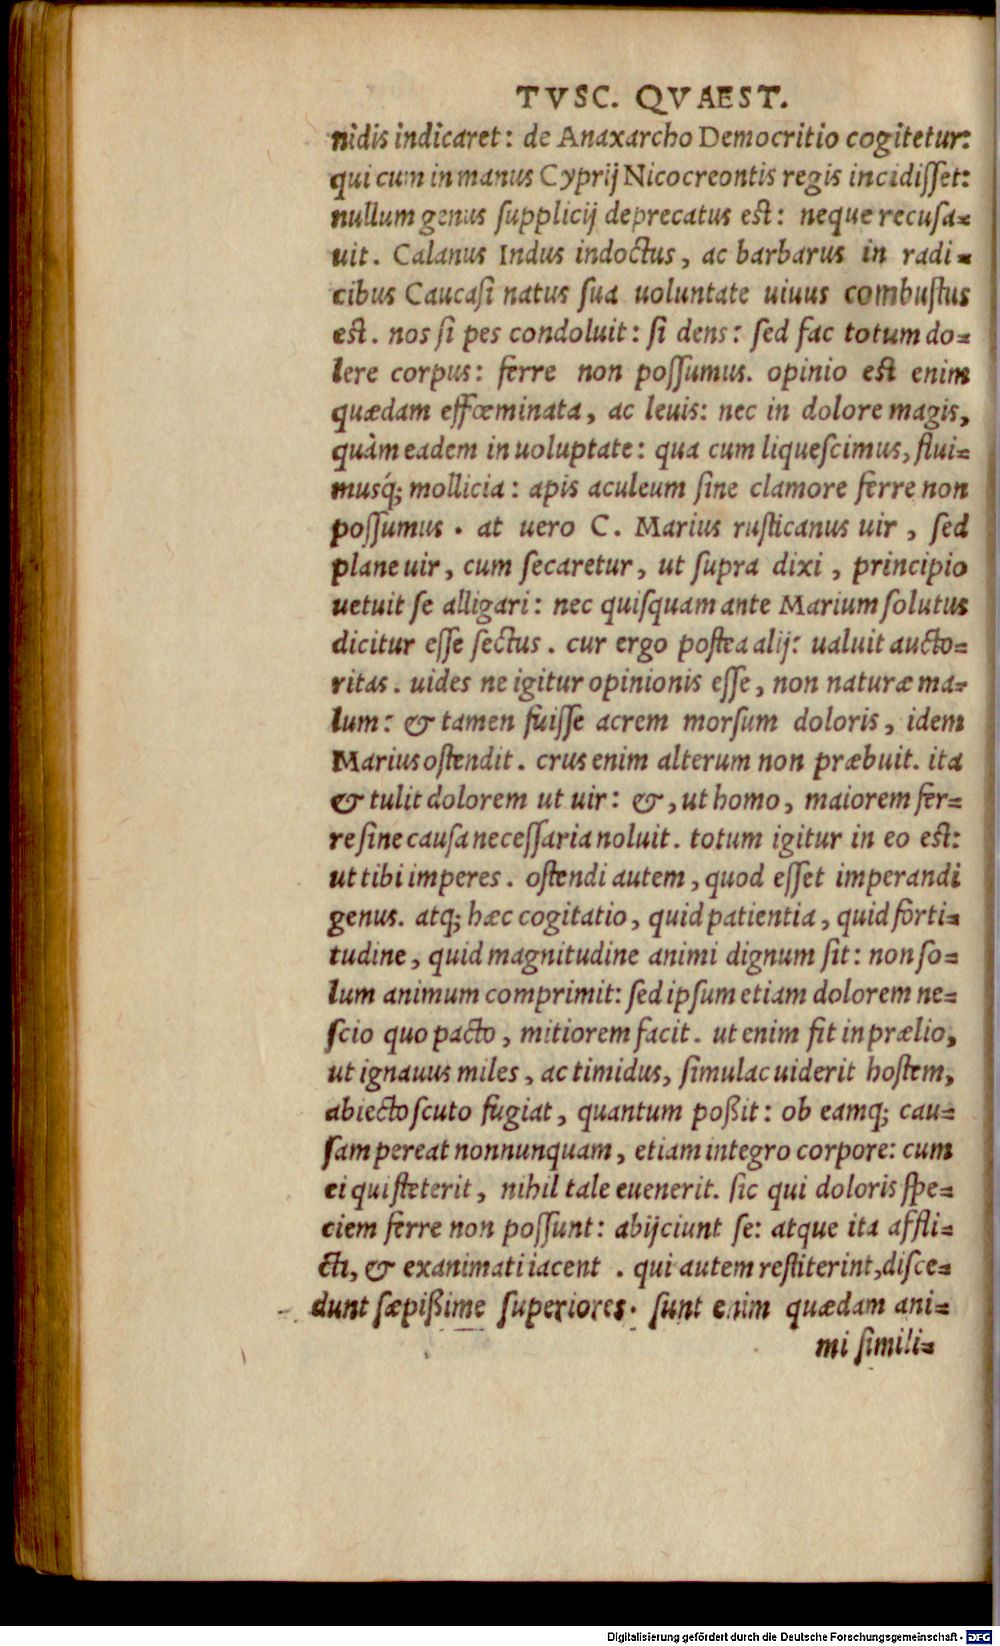 TVSC. QVAEST.
nidis indicaret: de Anaxarcho Democritio cogitetur:
qui cum in manus Cyprij Nicocreontis regis incidiſſet:
nullum genus ſupplicij deprecatus est: neque recuſa-
uit. Calanus Indus indoctus, ac barbarus in radi-
cibus Caucaſi natus ſua uoluntate uiuus combuſtus
est. nos ſi pes condoluit: ſi dens: ſed fac totum do-
lere corpus: ferre non poſſumus. opinio est enim
quædam effœminata, ac leuis: nec in dolore magis,
quàm eadem in uoluptate: qua cum liqueſcimus, flui-
musq́; mollicia: apis aculeum ſine clamore ferre non
poſſumus. at uero C. Marius ruſticanus uir, ſed
plane uir, cum ſecaretur, ut ſupra dixi, principio
uetuit ſe alligari: nec quiſquam ante Marium ſolutus
dicitur eſſe ſectus. cur ergo poſtea alij: ualuit aucto-
ritas. uides ne igitur opinionis eſſe, non naturæ ma-
lum: & tamen fuiſſe acrem morſum doloris, idem
Marius oſtendit. crus enim alterum non præbuit. ita
& tulit dolorem ut uir: &, ut homo, maiorem fer-
re ſine cauſa neceſſaria noluit. totum igitur in eo est:
ut tibi imperes. oſtendi autem, quod eſſet imperandi
genus. atq; hæc cogitatio, quid patientia, quid forti-
tudine, quid magnitudine animi dignum ſit: non ſo-
lum animum comprimit: ſed ipſum etiam dolorem ne-
ſcio quo pacto, mitiorem facit. ut enim fit in prælio,
ut ignauus miles, ac timidus, ſimulac uiderit hoſtem,
abiecto ſcuto fugiat, quantum poßit: ob eamq; cau-
ſam pereat nonnunquam, etiam integro corpore: cum
ei qui ſteterit, nihil tale euenerit. ſic qui doloris ſpe-
ciem ferre non poſſunt: abijciunt ſe: atque ita affli-
cti, & exanimati iacent. qui autem reſtiterint, diſce-
dunt ſæpißime ſuperiores. ſunt enim quædam ani-
mi ſimili-
Digitalisierung gefördert durch die Deutsche Forschungsgemeinschaft - DFG